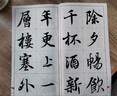 除夕暢飲
千杯酒新
年更上一
層樓塞外